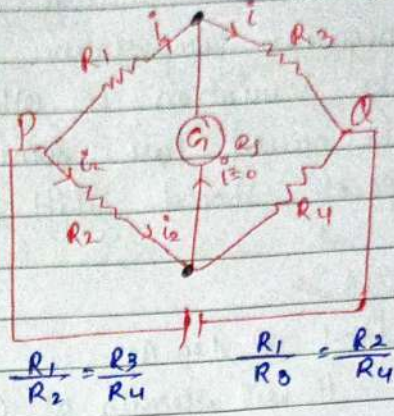 i i
R1 R3
P Q
G R5
i=0
i2
R2 i2 R4
R1/R2 = R3/R4 R1/R3 = R2/R4